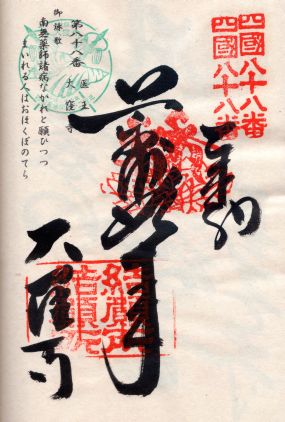 四國八十八番
四國八十八番
奉納
大窪寺
第八十八番
医王
大窪寺
御詠歌
南無薬師諸病なかれと願ひつつ
まいれる人はおほくぼのてら